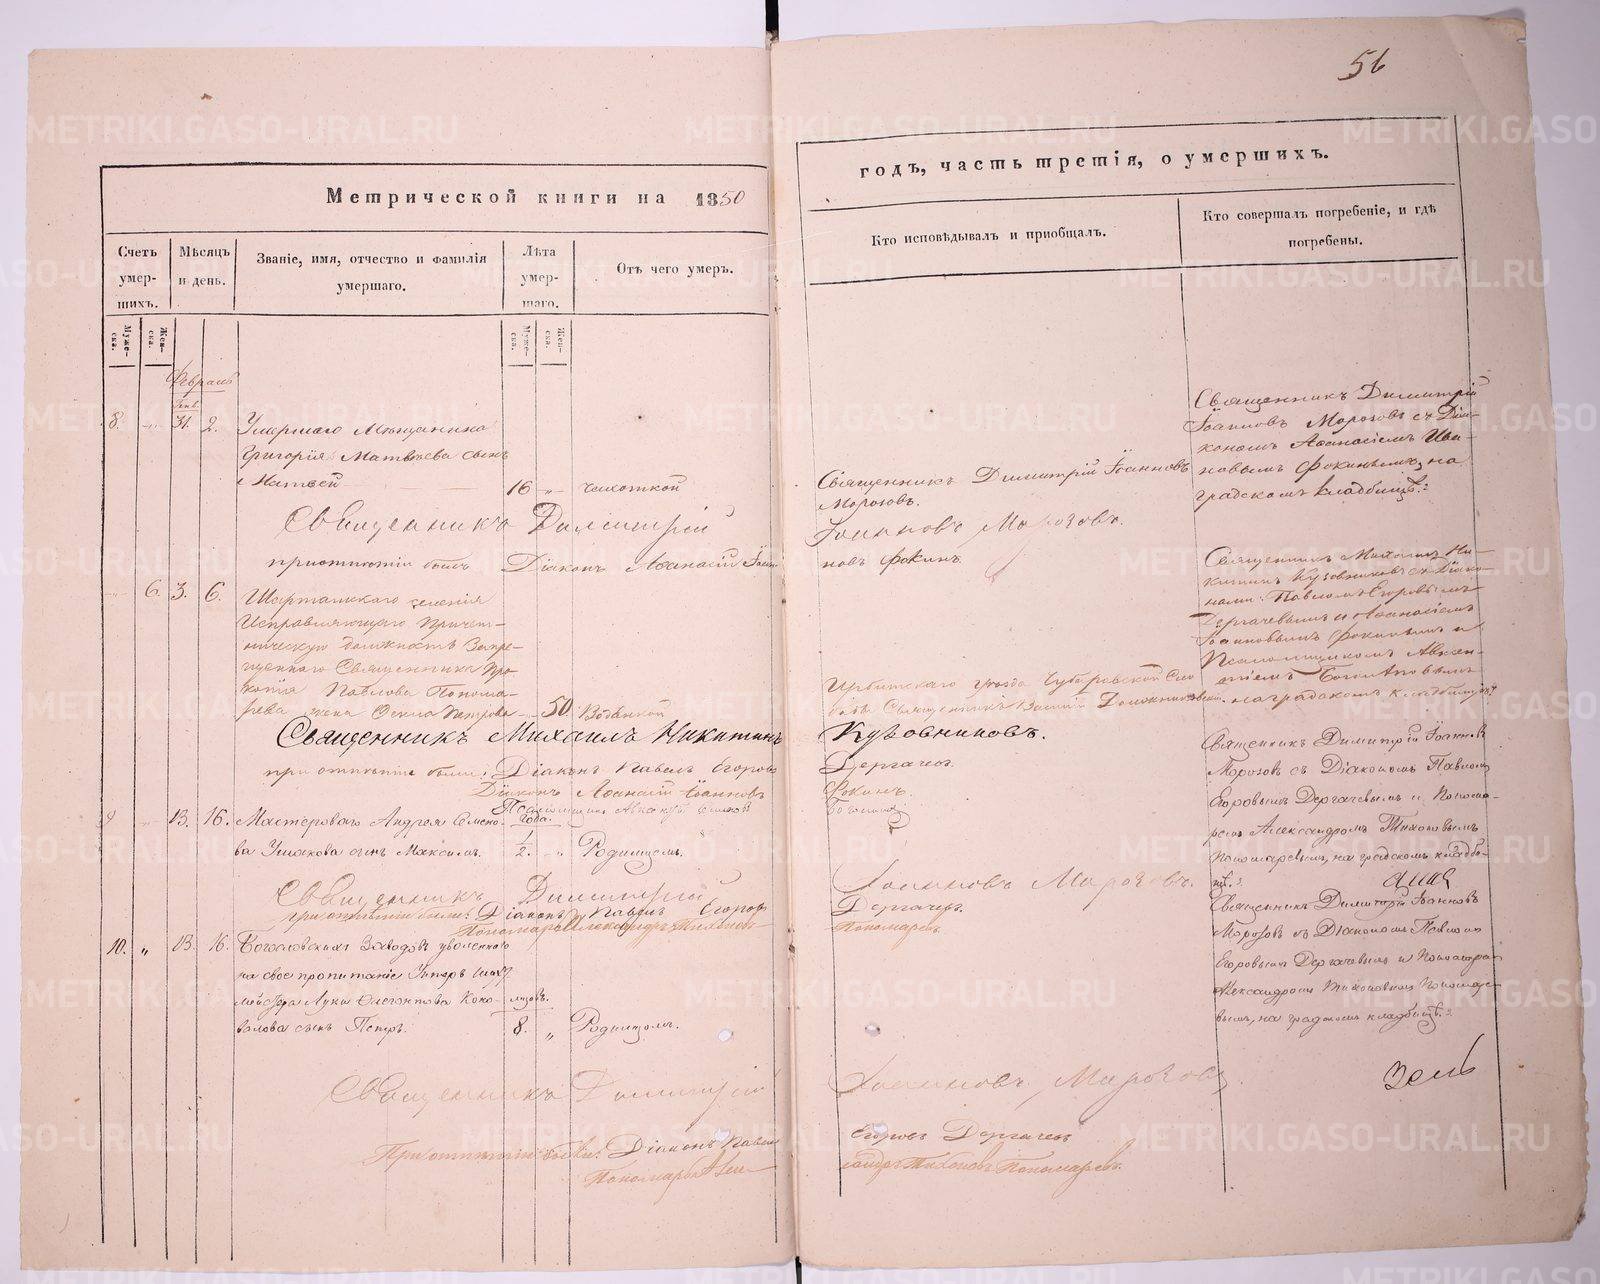 56
Метрической книги на 1850
годъ, часть третія, о умершихъ.
Счетъ умер-шихъ.
Мѣсяцъ и день.
Званіе, имя, отчество и фамилія умершаго.
Лѣта умер-шаго.
Отъ чего умеръ.
Кто исповѣдывалъ и пріобщалъ.
Кто совершалъ погребеніе, и гдѣ погребены.
Муже-ска.
Жен-ска.
Муже-ска.
Жен-ска.
Февраль
Генв.
8. 31. 2. Умершаго Мѣщанина
Григорія Матвѣева сынъ
Матвей 16 чахоткой
Священникъ Димитрій Іоанновъ
Морозовъ.
Священникъ Димитрій
Іоанновъ Морозовъ съ Діа-
кономъ Аѳанасіемъ Ива-
новымъ Фокинымъ, на
градскомъ кладбищѣ.
Священникъ Димитрій Іоанновъ Морозовъ.
при отпѣтіи были Діаконъ Аѳанасій Іоан-
новъ Фокинъ.
6. 3. 6. Шарташскаго селенія
Исправляющаго Причет-
ническую должность Запре-
щеннаго Священника Про-
копія Павлова Понома-
рева жена Ѳекла Петрова 50 Водянкой
Ирбитскаго уѣзда Сло
боды Священникъ
Священникъ Михаилъ Ни-
китинъ Кузовниковъ съ Діако-
нами: Павломъ Егоровымъ
Дергачевымъ и Аѳанасіемъ
Іоанновымъ Фокинымъ и
Псаломщикомъ Авксен-
тіемъ
на градскомъ кладбищѣ
Священникъ Михаилъ Никитинъ Кузовниковъ.
при отпѣтіи были: Діаконъ Павелъ Егоровъ Дергачев.
Діаконъ Аѳанасій Іоанновъ Фокинъ.
Псаломщикъ
9 13. 16. Мастероваго Андрея Семено-
ва Ушакова сынъ Максимъ.
года.
1/2. Родимцемъ.
Священникъ Димитрій Іоаннов
Морозов съ Діакономъ Павломъ
Егоровымъ Дергачевымъ и Понома-
ремъ Александромъ Тихоновымъ
Пономаревымъ, на градскомъ кладби-
щѣ.
Священникъ Димитрій Іоанновъ Морозовъ.
при отпѣтіи были: Діаконъ Павелъ Егоров Дергачев.
Пономарь Александръ Тихонов Пономарев.
10. „ 13. 16. Богословскихъ Заводовъ уволеннаго
на свое пропитаніе Унтеръ Шихт
мейстера Луки Коко-
валова сынъ Петръ.
8. „ Родимцом.
Священникъ Димитрій Іоаннов
Морозов съ Діаконом Павлом
Егоровым Дергачевым и Пономарем
Александром Тихоновым Пономаре-
вым, на градском кладбищѣ.
Священникъ Димитрій Іоаннов Морозов.
При отпѣтіи были: Діаконъ Павелъ
Егоровъ Дергачев
Пономарь Алек-
сандръ Тихонов Пономарев.
METRIKI.GASO-URAL.RU